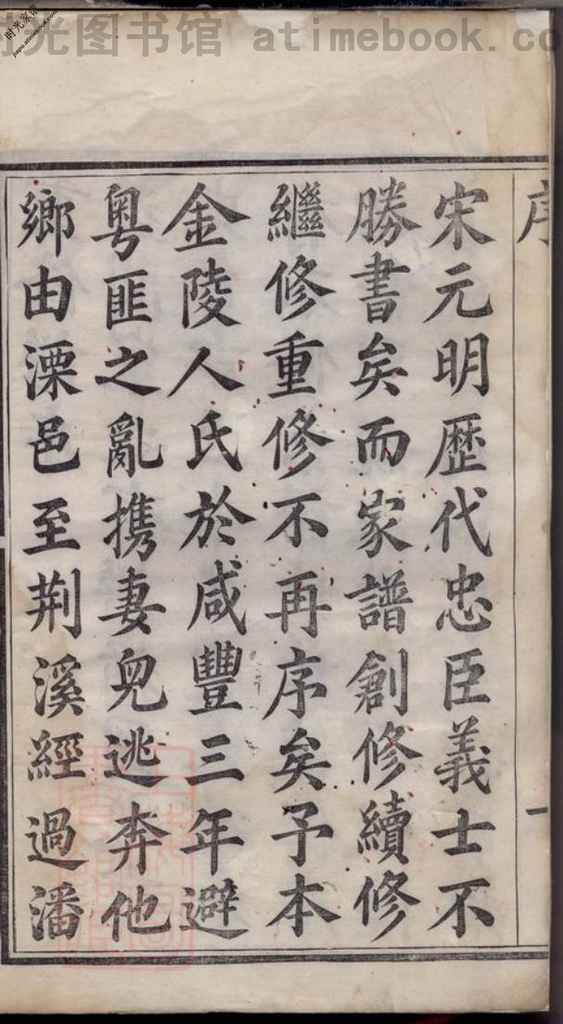 时光图书馆 atimebook.co
序
宋元明歷代忠臣義士不
勝書矣而家譜創修續修
繼修重修不再序矣予本
金陵人氏於咸豐三年避
粵匪之亂携妻兒逃奔他
鄉由溧邑至荆溪經過潘
一